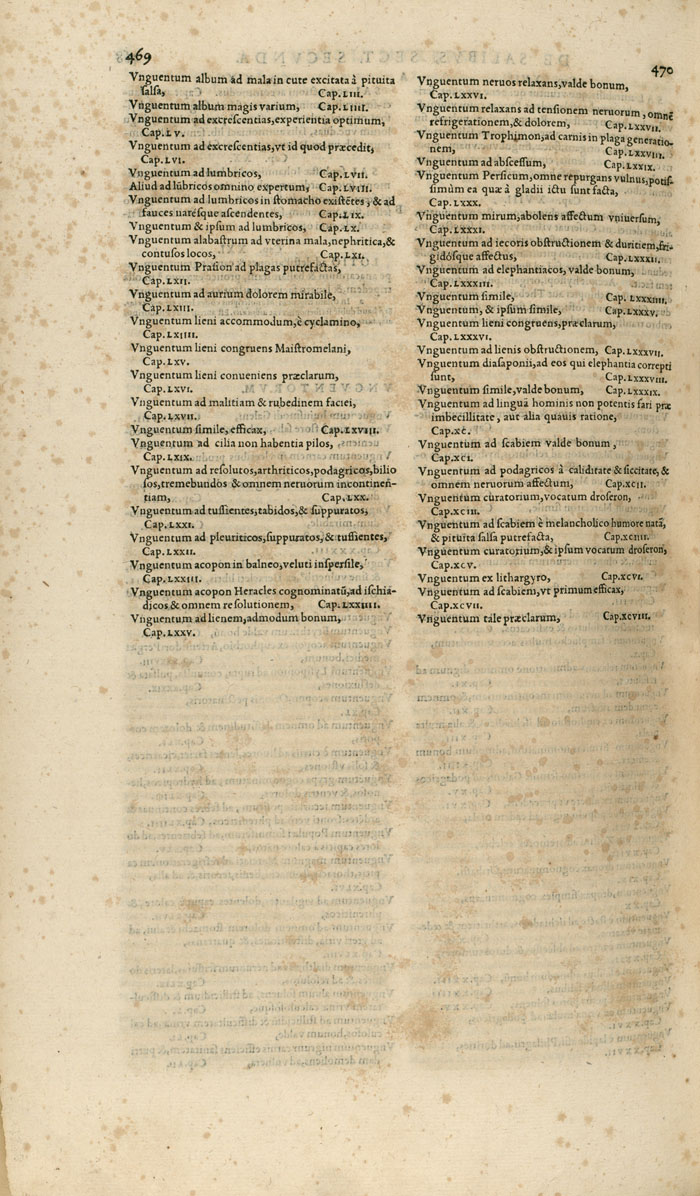 469
Vnguentum album ad mala in cute excitata à pituita
salsa, Cap. LIII.
Vnguentum album magis varium, Cap. LIIII.
Vnguentum ad excrescentias, experientia optimum,
Cap. LV.
Vnguentum ad excrescentias, vt id quod præcedit,
Cap. LVI.
Vnguentum ad lumbricos, Cap. LVII.
Aliud ad lūbricos omnino expertum, Cap. LVIII.
Vnguentum ad lumbricos in stomacho existētes, & ad
fauces naresque ascendentes, Cap. LIX.
Vnguentum & ipsum ad lumbricos, Cap. LX.
Vnguentum alabastrum ad vterina mala, nephritica, &
contusos locos, Cap. LXI.
Vnguentum Prasion ad plagas putrefactas,
Cap. LXII.
Vnguentum ad aurium dolorem mirabile,
Cap. LXIII.
Vnguentum lieni accommodum, è cyclamino,
Cap. LXIIII.
Vnguentum lieni congruens Maistromelani,
Cap. LXV.
Vnguentum lieni conueniens præclarum,
Cap. LXVI.
Vnguentum ad malitiam & rubedinem faciei,
Cap. LXVII.
Vnguentum simile, efficax, Cap. LXVIII.
Vnguentum ad cilia non habentia pilos,
Cap. LXIX.
Vnguentum ad resolutos, arthriticos, podagricos, bilio
sos, tremebundos & omnem neruorum incontinen-
tiam, Cap. LXX.
Vnguentum ad tussientes, tabidos, & suppuratos,
Cap. LXXI.
Vnguentum ad pleuriticos, suppuratos, & tussientes,
Cap. LXXII.
Vnguentum acopon in balneo, veluti inspersile,
Cap. LXXIII.
Vnguentum acopon Heracles cognominatū, ad ischia-
dicos & omnem resolutionem, Cap. LXXIIII.
Vnguentum ad lienem, admodum bonum,
Cap. LXXV.
470
Vnguentum neruos relaxans, valde bonum,
Cap. LXXVI.
Vnguentum relaxans ad tensionem neruorum, omnē
refrigerationem, & dolorem, Cap. LXXVII.
Vnguentum Trophimon, ad carnis in plaga generatio-
nem, Cap. LXXVIII.
Vnguentum ad abscessum, Cap. LXXIX.
Vnguentum Persicum, omne repurgans vulnus, potis-
simùm ea quæ à gladii ictu sunt facta,
Cap. LXXX.
Vnguentum mirum, abolens affectum vniuersum,
Cap. LXXXI.
Vnguentum ad iecoris obstructionem & duritiem, fri-
gidósque affectus, Cap. LXXXII.
Vnguentum ad elephantiacos, valde bonum,
Cap. LXXXIII.
Vnguentum simile, Cap. LXXXIIII.
Vnguentum, & ipsum simile, Cap. LXXXV.
Vnguentum lieni congruens, præclarum,
Cap. LXXXVI.
Vnguentum ad lienis obstructionem, Cap. LXXXVII.
Vnguentum diasaponii, ad eos qui elephantia correpti
sunt, Cap. LXXXVIII.
Vnguentum simile, valde bonum, Cap. LXXXIX.
Vnguentum ad linguā hominis non potentis fari præ
imbecillitate, aut alia quauis ratione,
Cap. XC.
Vnguentum ad scabiem valde bonum,
Cap. XCI.
Vnguentum ad podagricos à caliditate & siccitate, &
omnem neruorum affectum, Cap. XCII.
Vnguentum curatorium, vocatum droseron,
Cap. XCIII.
Vnguentum ad scabiem è melancholico humore natā,
& pituita salsa putrefacta, Cap. XCIIII.
Vnguentum curatorium, & ipsum vocatum droseron,
Cap. XCV.
Vnguentum ex lithargyro, Cap. XCVI.
Vnguentum ad scabiem, vt primum efficax,
Cap. XCVII.
Vnguentum tale præclarum, Cap. XCVIII.